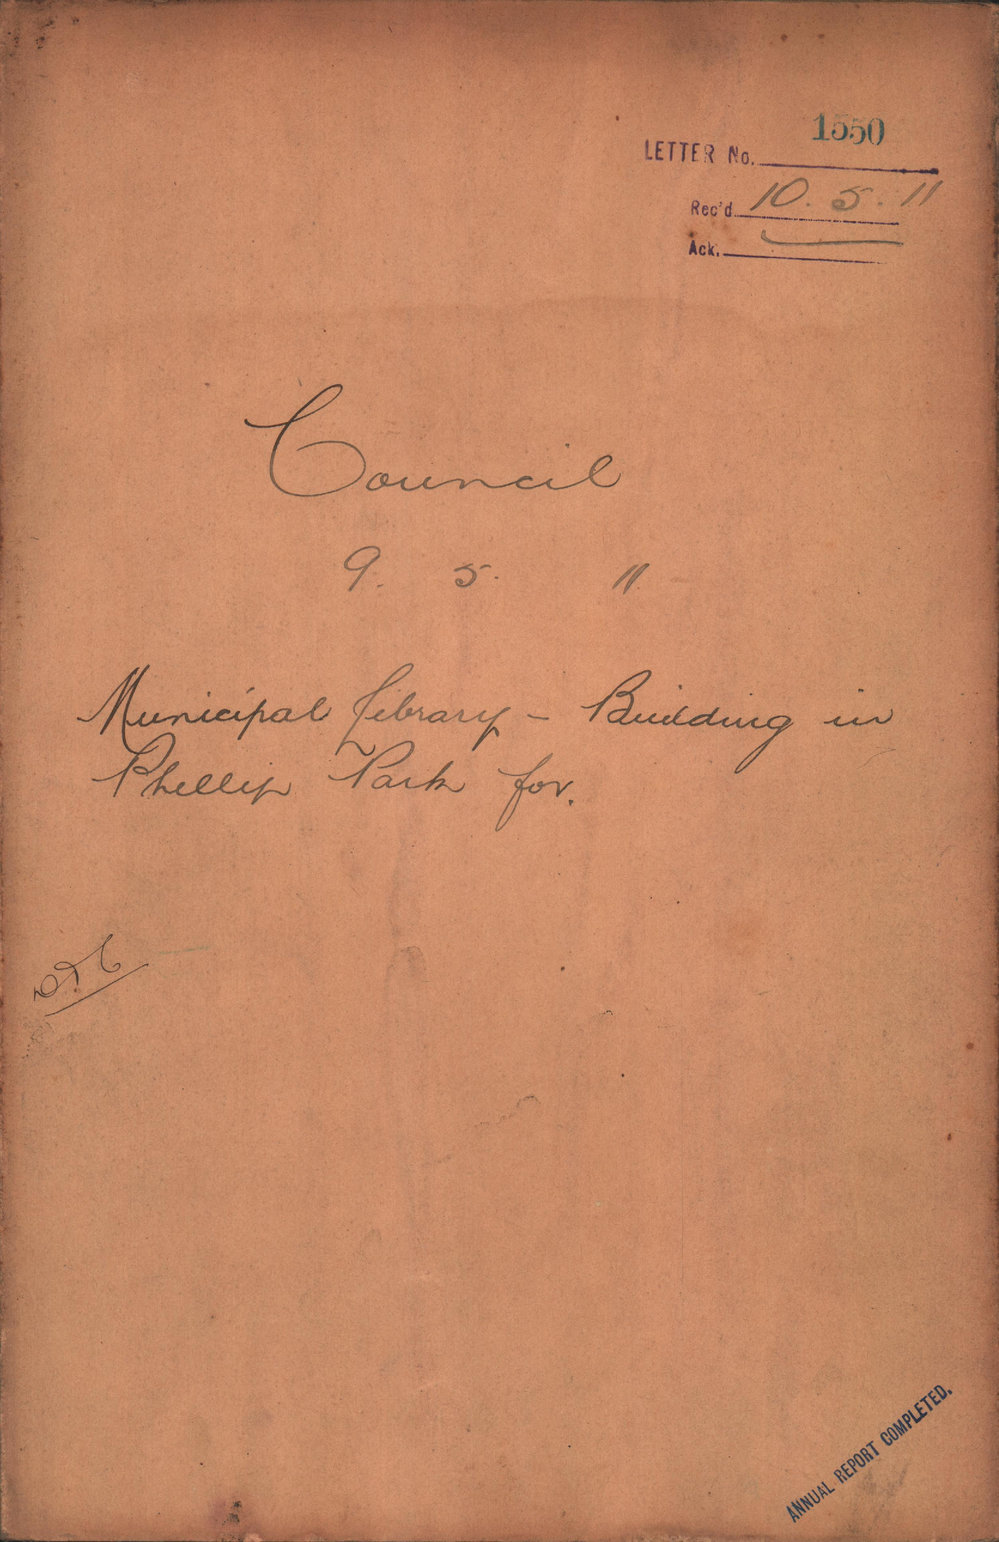 1550
LETTER No.
Rec'd 10. 5. 11
Ack.
Council
9. 5. 11
Municipal Library – Building in
Phillip Park for.
ANNUAL REPORT COMPLETED.